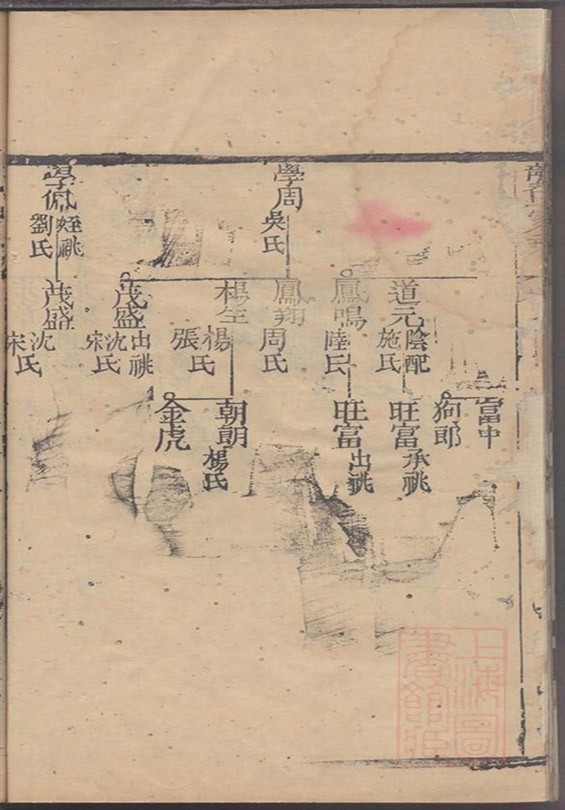 學周
吳氏
學佩
姪祧
劉氏
道元
陰配
施氏
鳳鳴
陸氏
鳳翔
周氏
楊生
楊氏
張
茂盛
出祧
沈氏
宋
茂盛
沈氏
宋
富中
狗郎
旺富
承祧
旺富
出祧
朝朝
楊氏
金虎
上海圖
書館藏